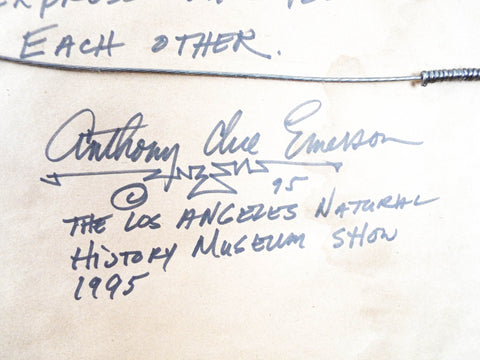 EACH OTHER.
Anthony Chee Emerson
© 95
THE LOS ANGELES NATURAL
HISTORY MUSEUM SHOW
1995